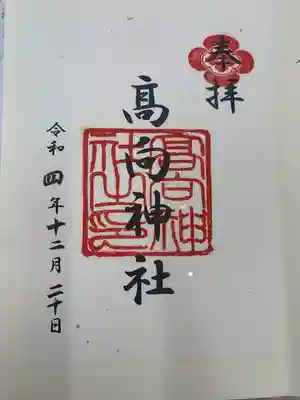 奉拝
髙向神社
令和四年十二月二十日